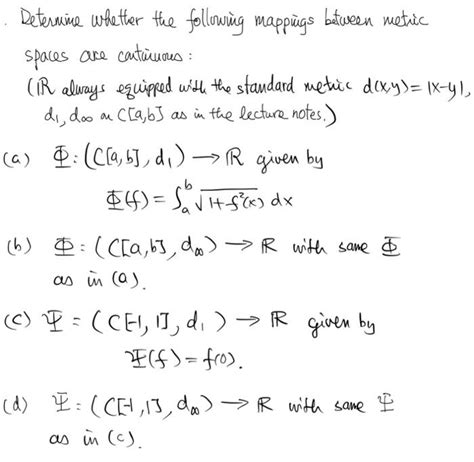 . Determine whether the following mappings between metric
spaces are continuous :
(ℝ always equipped with the standard metric d(x,y)=|x-y|,
d₁, d∞ on C[a,b] as in the lecture notes.)
(a) Φ : (C[a,b], d₁) → ℝ given by
Φ(f) = ∫ₐᵇ √(1+f²(x)) dx
(b) Φ : (C[a,b], d∞) → ℝ with same Φ
as in (a).
(c) Ψ = (C[-1, 1], d₁) → ℝ given by
Ψ(f) = f(0).
(d) Ψ : (C[-1, 1], d∞) → ℝ with same Ψ
as in (c).